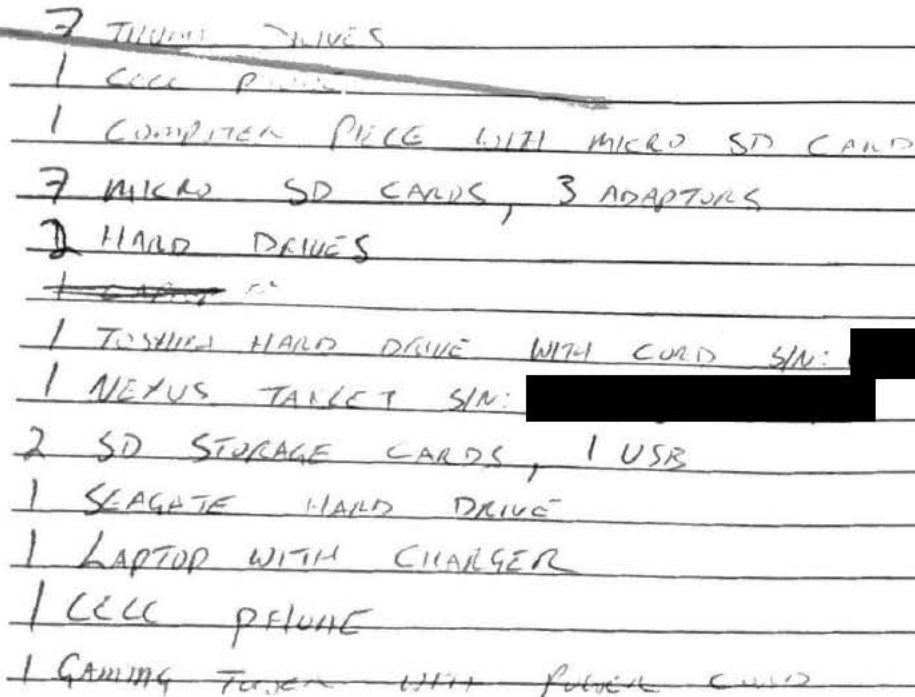 7 THUMB DRIVES
1 CELL PHONE
1 COMPUTER PIECE WITH MICRO SD CARD
7 MICRO SD CARDS, 3 ADAPTORS
2 HARD DRIVES
1
1 TOSHIBA HARD DRIVE WITH CORD S/N:
1 NEXUS TABLET S/N:
2 SD STORAGE CARDS, 1 USB
1 SEAGATE HARD DRIVE
1 LAPTOP WITH CHARGER
1 CELL PHONE
1 GAMING TOWER WITH POWER CORD